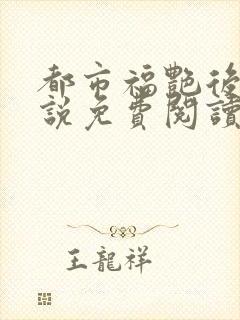 都市福艷後
説免費閱讀
王龍祥